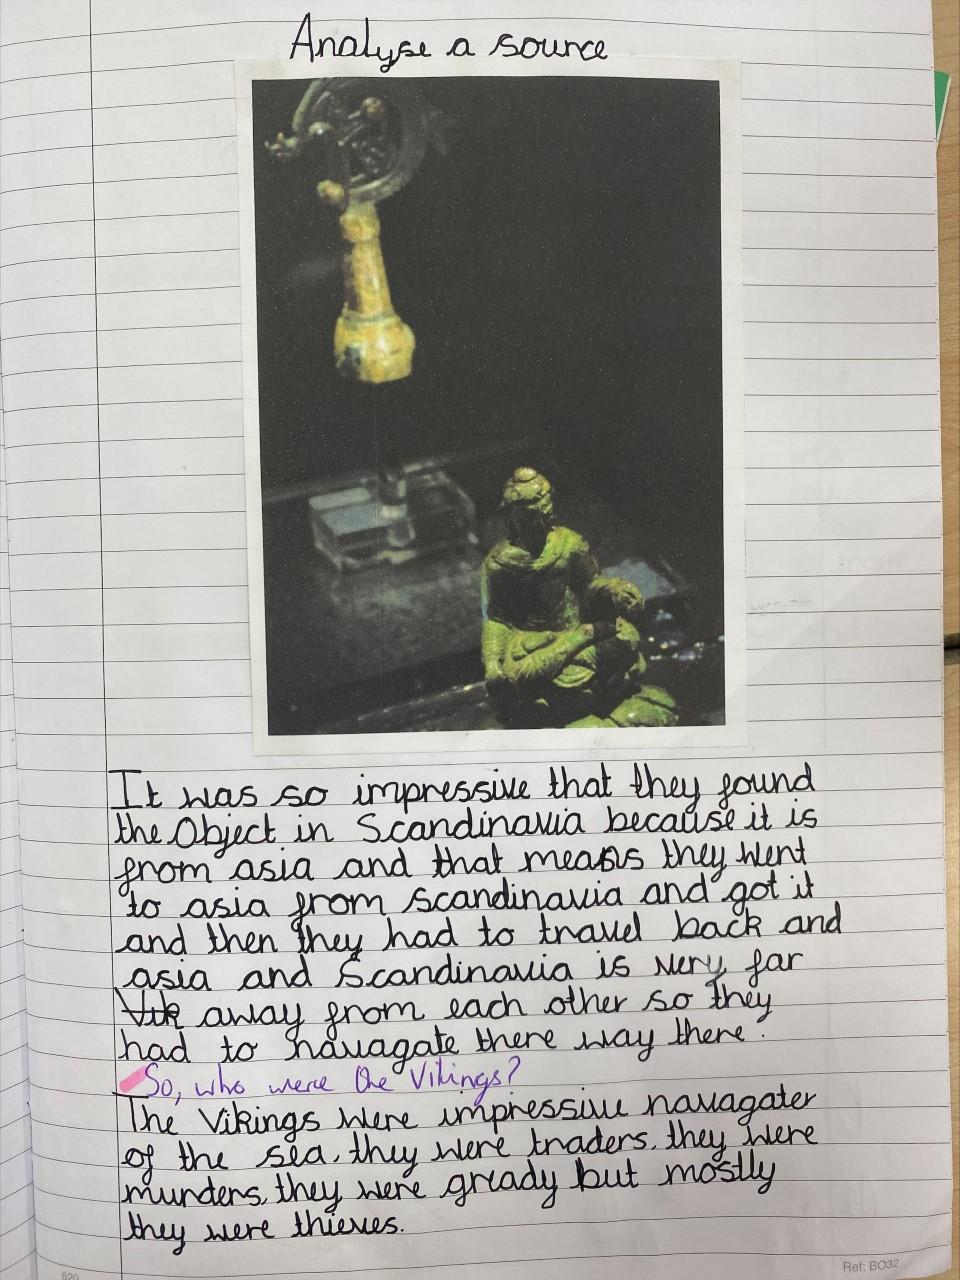 Analyse a source
It was so impressive that they found
the Object in Scandinavia because it is
from asia and that means they went
to asia from scandinavia and got it
and then they had to travel back and
asia and Scandinavia is very far
Vik away from each other so they
had to navagate there way there.
So, who were the Vikings?
The Vikings were impressive navagater
of the sea, they were traders, they were
murders, they were gready but mostly
they were thieves.
620
Ref: BO32